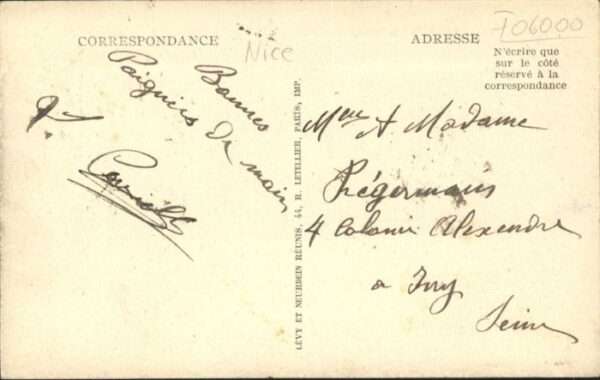 CORRESPONDANCE
Nice
Bonnes
Poignées de main
ADRESSE
706000
N'écrire que
sur le côté
réservé à la
correspondance
LÉVY ET NEURDEIN RÉUNIS, 44, R. LETELLIER, PARIS, IMP.
Madame
4 Colonie Alexandre
a Ivry
Seine